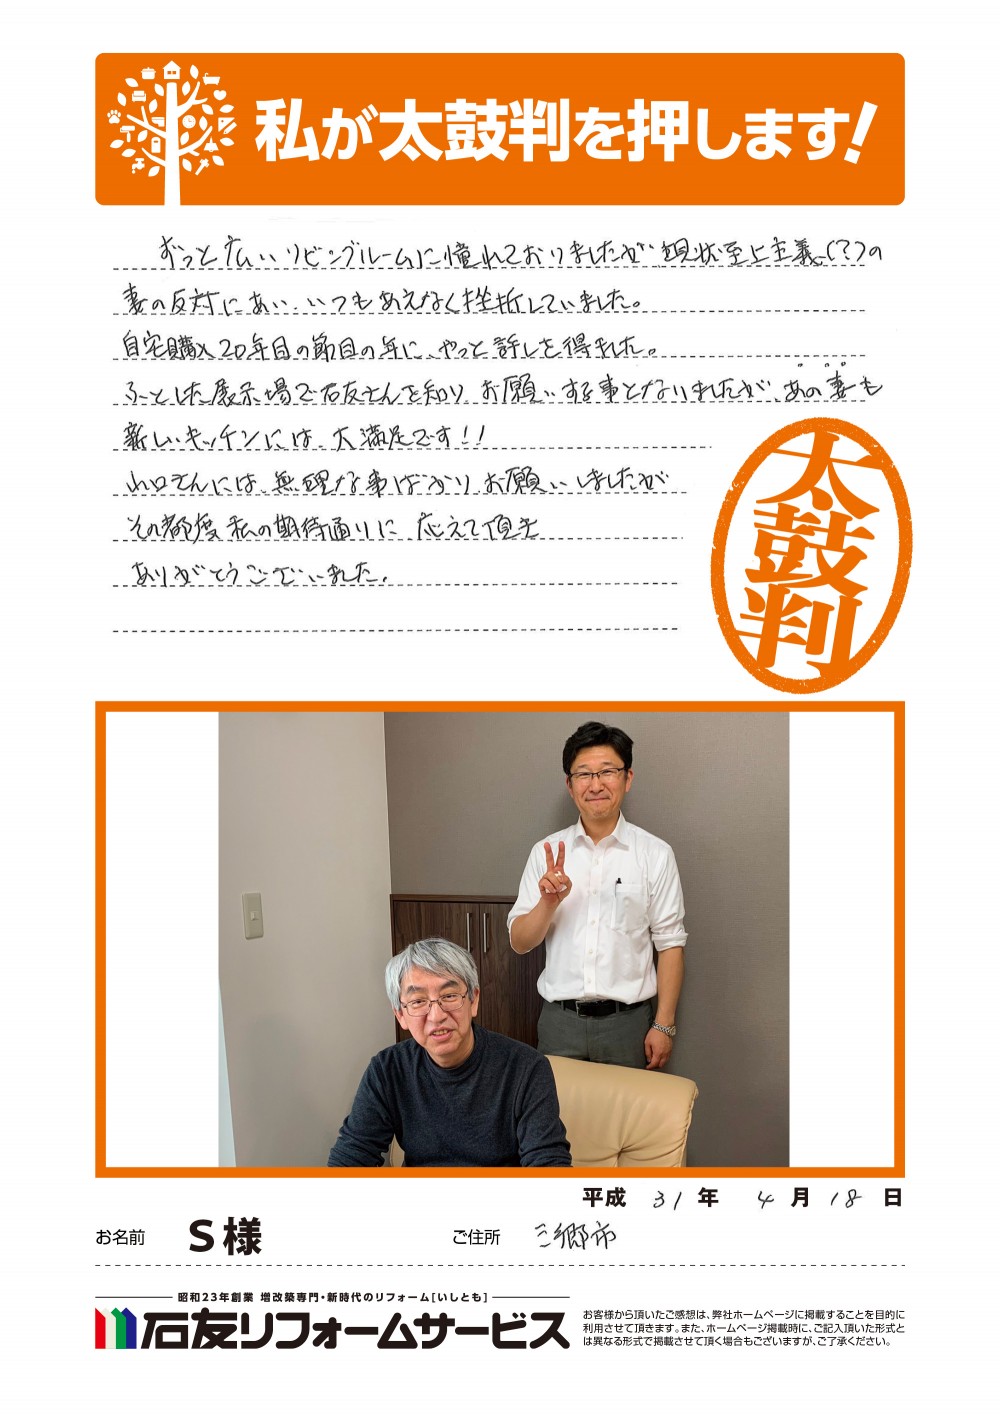 私が太鼓判を押します!
ずっと広いリビングルームに憧れておりましたが 現状至上主義(?)の
妻の反対にあい、いつもあえなく挫折していました。
自宅購入20年目の節目の年に、やっと許しを得ました。
ふとした展示場で石友さんを知り、お願いする事となりましたが、あの妻も
新しいキッチンには、大満足です!!
山口さんには、無理な事ばかり お願いしましたが
その都度 私の期待通りに 応えて頂き
ありがとうございました。
太鼓判
平成 31 年 4 月 18 日
お名前 S様 ご住所 三郷市
昭和23年創業 増改築専門・新時代のリフォーム[いしとも]
石友リフォームサービス
お客様から頂いたご感想は、弊社ホームページに掲載することを目的に
利用させて頂きます。また、ホームページ掲載時に、ご記入頂いた形式と
は異なる形式で掲載させて頂く場合もございますが、ご了承ください。